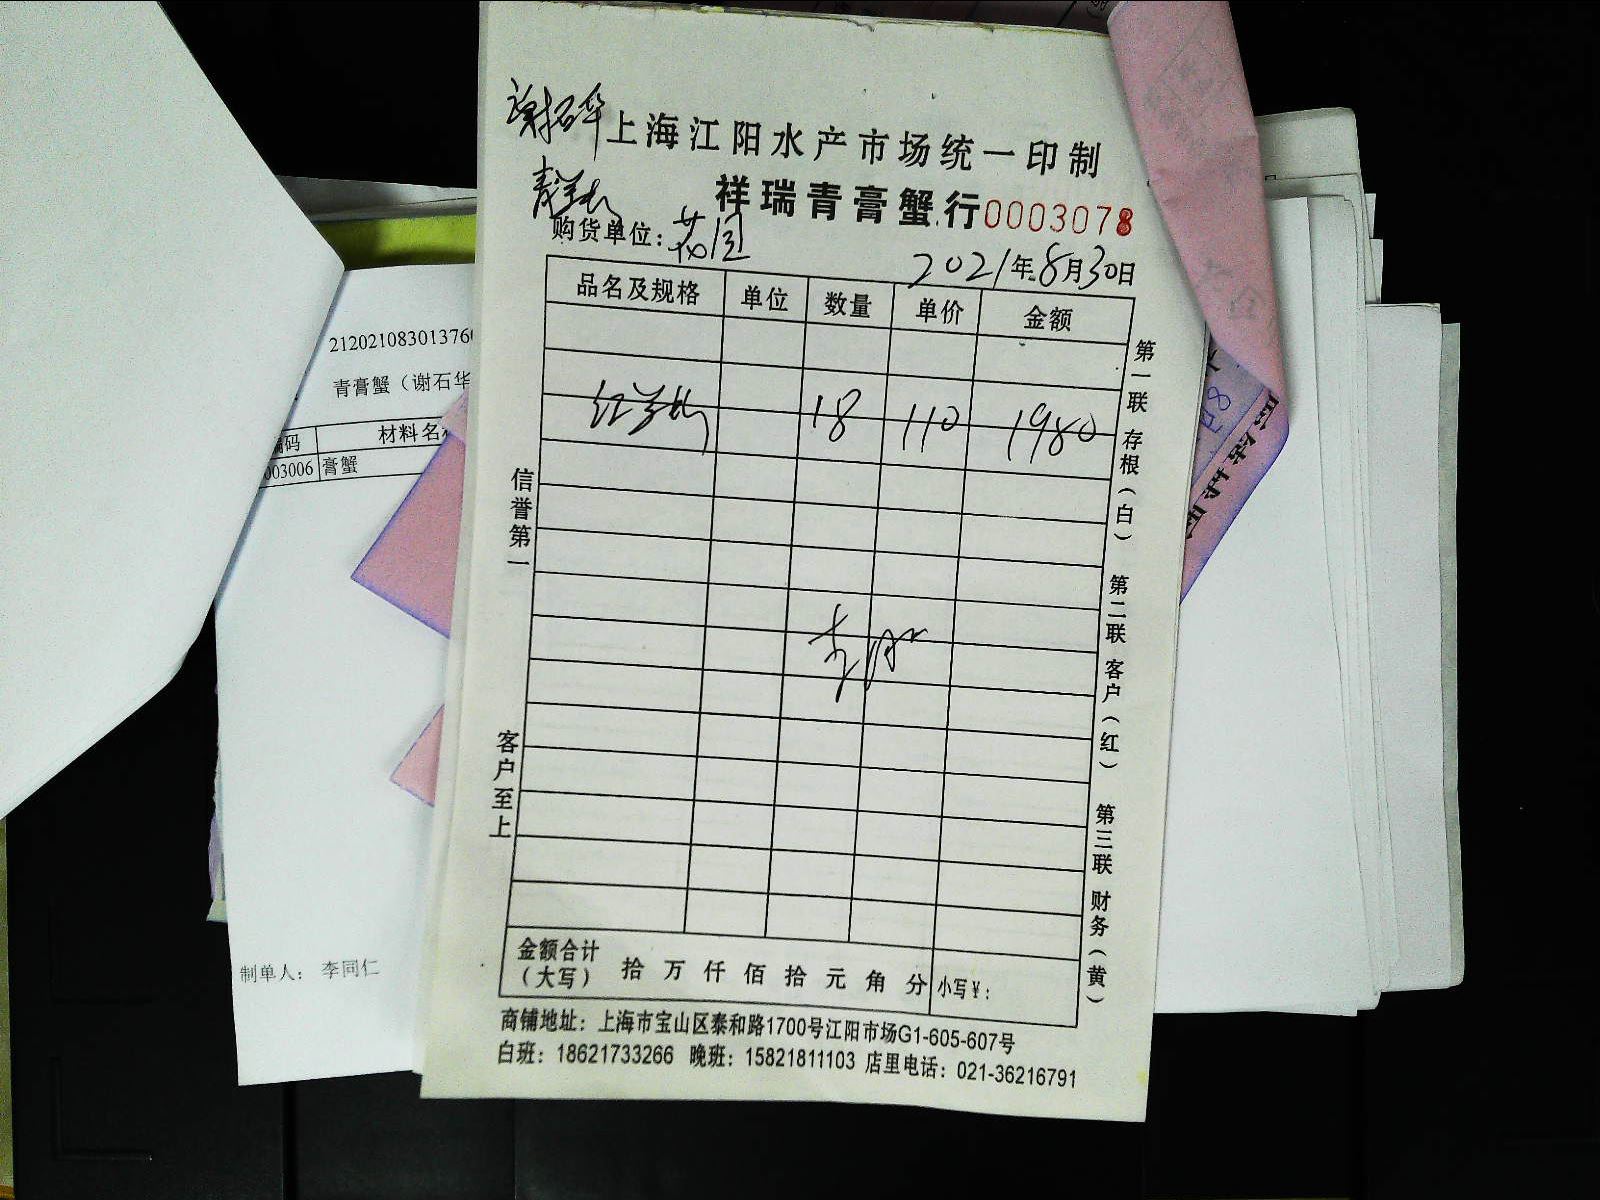 谢石华
上海江阳水产市场统一印制
祥瑞青膏蟹行 0003078
购货单位：
2021年8月30日
品名及规格 单位 数量 单价 金额
18 110 1980
信誉第一
客户至上
第一联 存根（白）
第二联 客户（红）
第三联 财务（黄）
金额合计
（大写） 拾 万 仟 佰 拾 元 角 分 小写￥：
商铺地址：上海市宝山区泰和路1700号江阳市场G1-605-607号
白班：18621733266 晚班：15821811103 店里电话：021-36216791
212021083013760
青膏蟹（谢石华
编码 材料名
003006 膏蟹
制单人： 李同仁